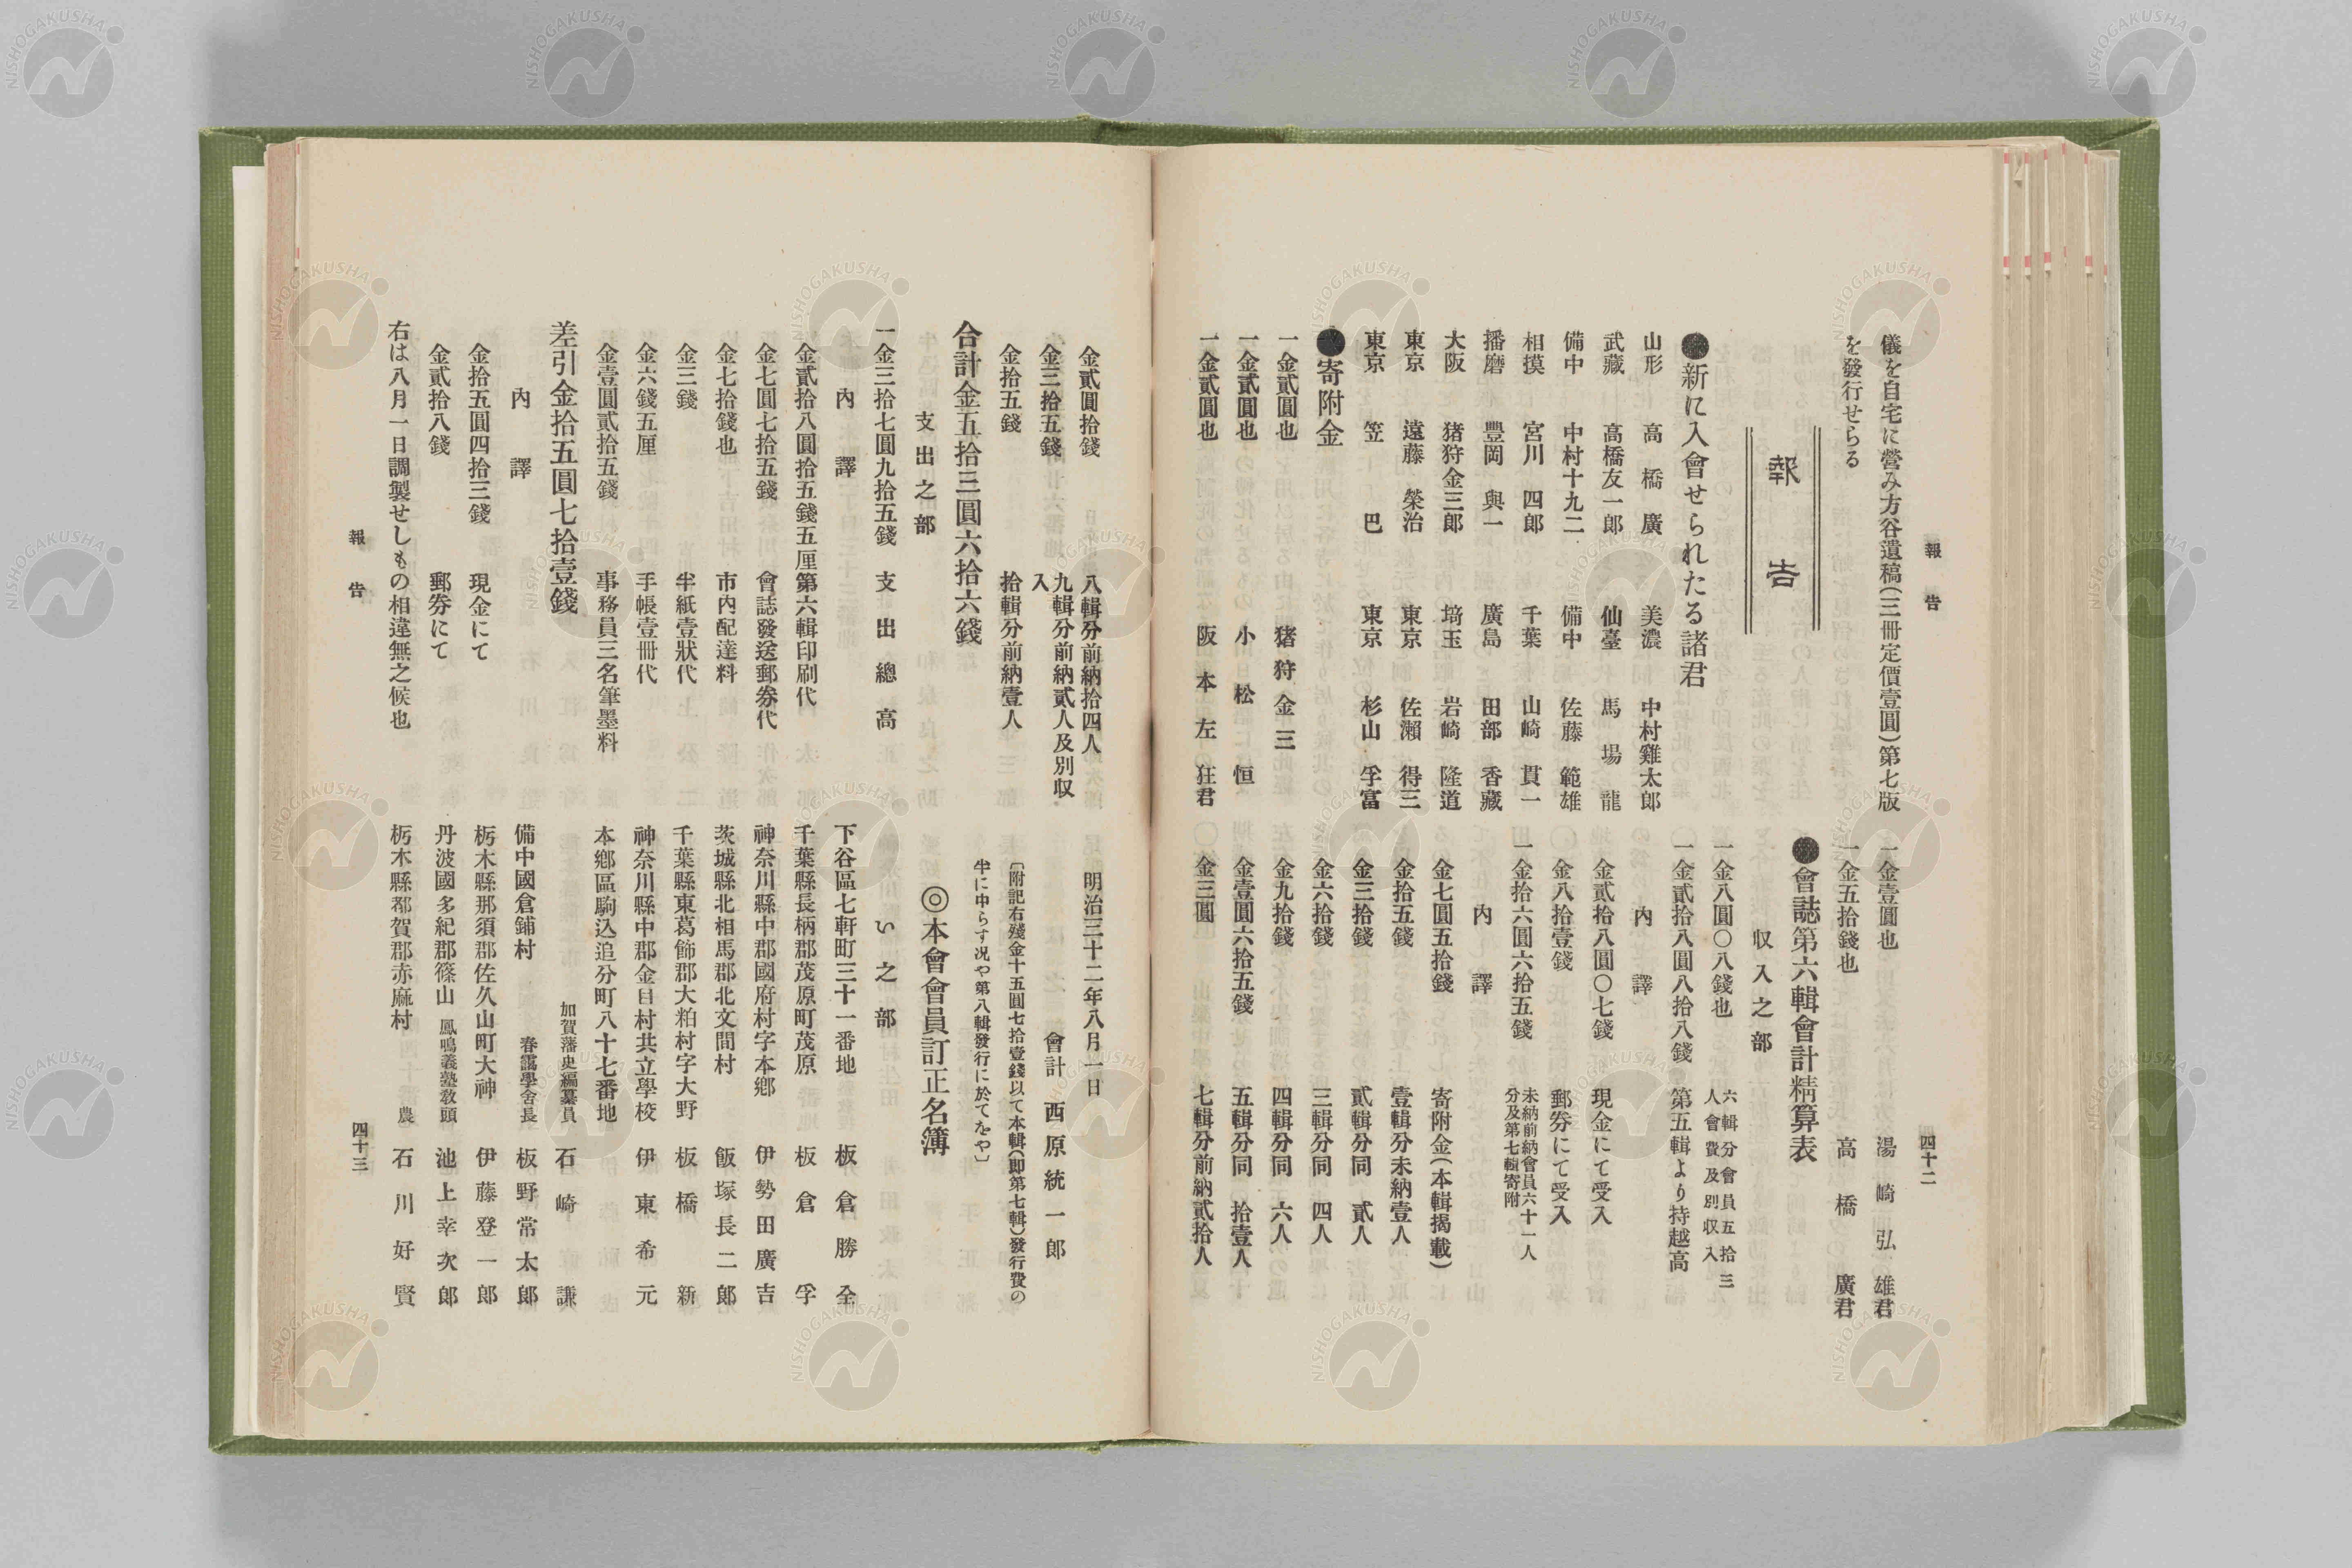 報告
四十二
儀を自宅に營み方谷遺稿(三冊定價壹圓)第七版
を發行せらる
報告
●新に入會せられたる諸君
山形 高橋廣 美濃 中村雞太郎
武藏 高橋友一郎 仙臺 馬場龍
備中 中村十九二 備中 佐藤範雄
相摸 宮川四郎 千葉 山崎貫一
播磨 豐岡與一 廣島 田部香藏
大阪 猪狩金三郎 埼玉 岩崎隆道
東京 遠藤榮治 東京 佐瀨得三
東京 笠巴 東京 杉山孚富
●寄附金
一金貳圓也 猪狩金三
一金貳圓也 小松恒
一金貳圓也 阪本左狂君
一金壹圓也 湯崎弘雄君
一金五拾錢也 高橋廣君
●會誌第六輯會計精算表
収入之部
一金八圓〇八錢也 六輯分會員五拾三
人會費及別収入
一金貳拾八圓八拾八錢 第五輯より持越高
內譯
金貳拾八圓〇七錢 現金にて受入
金八拾壹錢 郵券にて受入
一金拾六圓六拾五錢 未納前納會員六十一人
分及第七輯寄附
內譯
金七圓五拾錢 寄附金(本輯揭載)
金拾五錢 壹輯分未納壹人
金三拾錢 貳輯分同 貳人
金六拾錢 三輯分同 四人
金九拾錢 四輯分同 六人
金壹圓六拾五錢 五輯分同 拾壹人
金三圓 七輯分前納貳拾人
金貳圓拾錢 八輯分前納拾四人
金三拾五錢 九輯分前納貳人及別収
入
金拾五錢 拾輯分前納壹人
合計金五拾三圓六拾六錢
支出之部
一金三拾七圓九拾五錢 支出總高
內譯
金貳拾八圓拾五錢五厘 第六輯印刷代
金七圓七拾五錢 會誌發送郵券代
金七拾錢也 市内配達料
金三錢 半紙壹狀代
金六錢五厘 手帳壹冊代
金壹圓貳拾五錢 事務員三名筆墨料
差引金拾五圓七拾壹錢
內譯
金拾五圓四拾三錢 現金にて
金貳拾八錢 郵券にて
右は八月一日調製せしもの相違無之候也
明治三十二年八月一日
會計 西原統一郎
〔附記右殘金十五圓七拾壹錢以て本輯(即第七輯)發行費の
半に中らす况や第八輯發行に於てをや〕
◎本會會員訂正名簿
い之部
下谷區七軒町三十一番地 板倉勝全
千葉縣長柄郡茂原町茂原 板倉孚
神奈川縣中郡國府村字本鄕 伊勢田廣吉
茨城縣北相馬郡北文間村 飯塚長二郎
千葉縣東葛飾郡大粕村字大野 板橋新
神奈川縣中郡金目村共立學校 伊東希元
本鄕區駒込追分町八十七番地
加賀藩史編纂員 石崎謙
備中國倉鋪村 春靄學舍長 板野常太郎
栃木縣那須郡佐久山町大神 伊藤登一郎
丹波國多紀郡篠山 鳳鳴義塾敎頭 池上幸次郎
栃木縣都賀郡赤麻村 農 石川好賢
報告
四十三
NISHOGAKUSHA